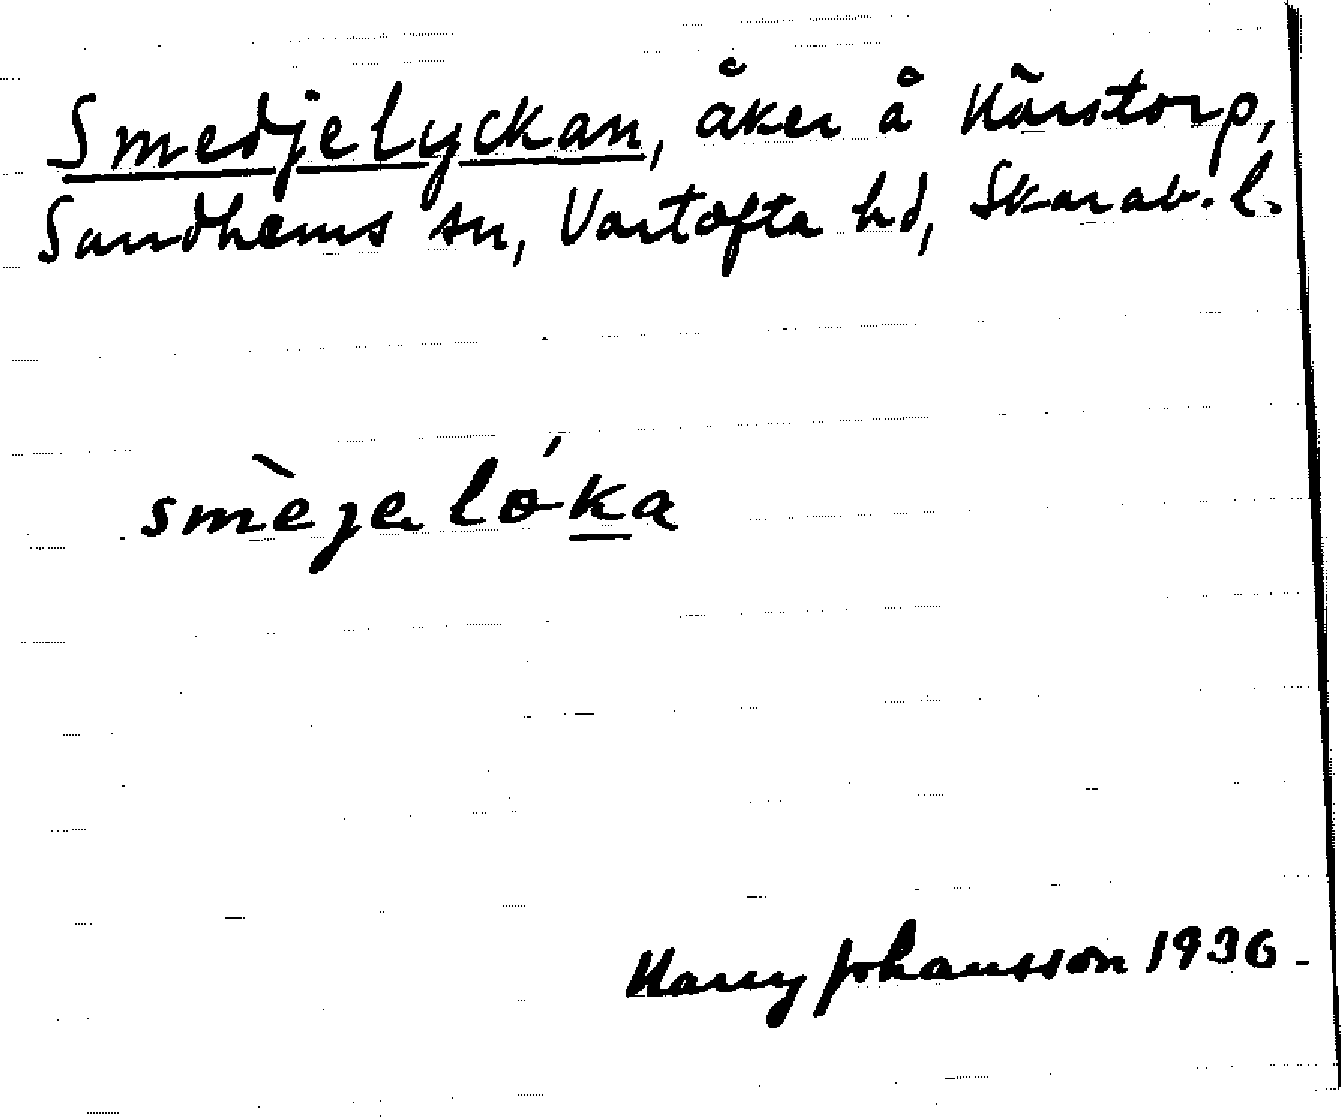 Smedjelyckan, åker å Kårstorp,
Sandhems sn, Vartofta hd, Skarab. l.
smὲjelóka
Harry Johansson 1936